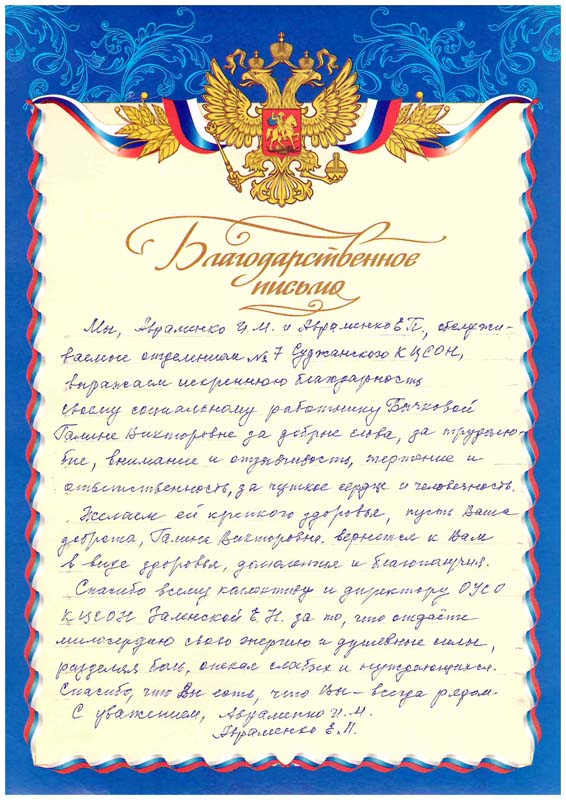 Благодарственное
письмо
Мы, Авраменко И.М. и Авраменко Е.П., обслужи-
ваемые отделением № 7 Суджанского КЦСОН,
выражаем искреннюю благодарность
своему социальному работнику Бычковой
Галине Викторовне за добрые слова, за трудолю-
бие, внимание и отзывчивость, терпение и
ответственность, за чуткое сердце и человечность.
Желаем ей крепкого здоровья, пусть Ваша
доброта, Галина Викторовна, вернется к Вам
в виде здоровья, долголетия и благополучия.
Спасибо всему коллективу и директору ОУСО
КЦСОН Е.Н. за то, что отдаёте
милосердию свою энергию и душевные силы,
разделяя боль, опекая слабых и нуждающихся.
Спасибо, что Вы есть, что Вы - всегда рядом.
С уважением, Авраменко И.М.
Авраменко Е.П.